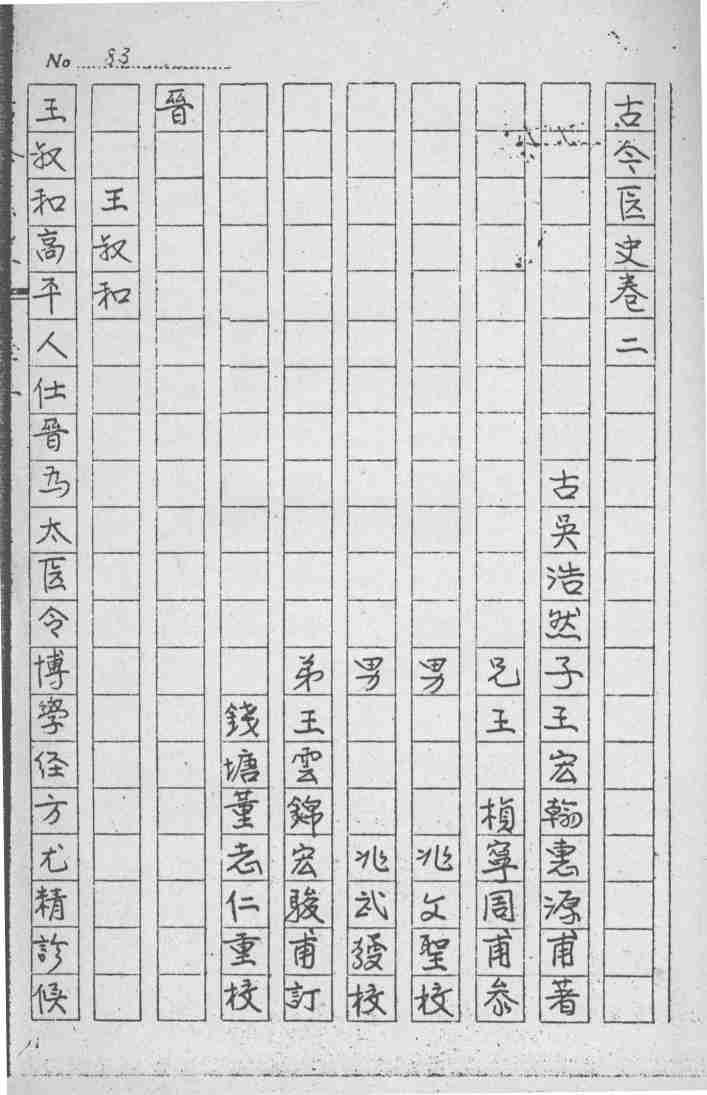 No 83
古今医史卷二
古吳浩然子王宏翰惠源甫著
兄王楨寧周甫叅
男兆文聖校
男兆武發校
弟王雲錦宏駿甫訂
錢塘董志仁重校
晉
王叔和
王叔和高平人仕晉为太医令博學径方尤精診候